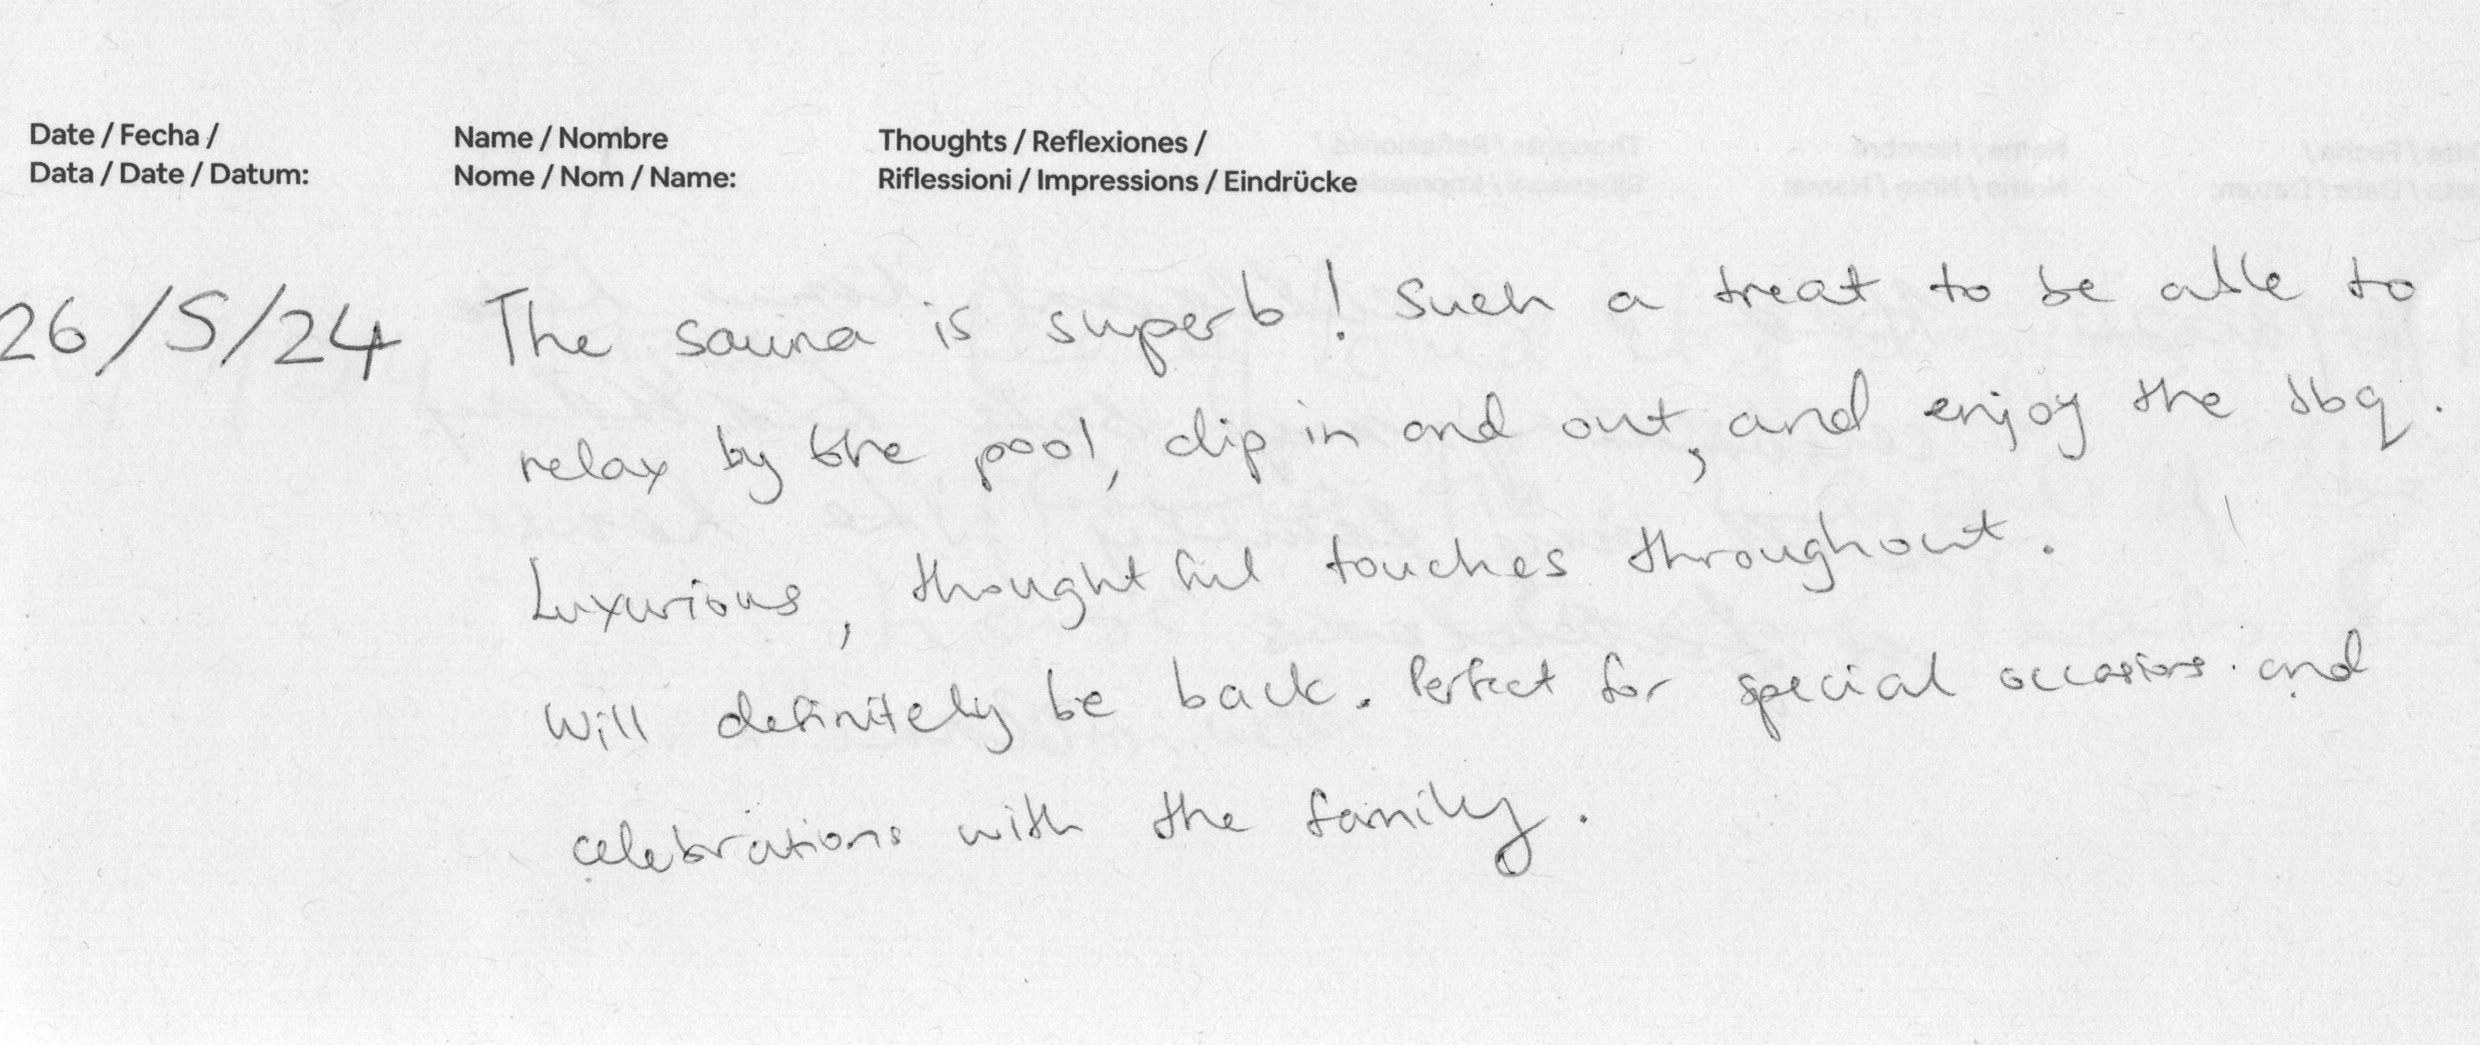 Date / Fecha /
Data / Date / Datum:
Name / Nombre
Nome / Nom / Name:
Thoughts / Reflexiones /
Riflessioni / Impressions / Eindrücke
26/5/24 The sauna is superb! Such a treat to be able to
relax by the pool, dip in and out, and enjoy the bbq.
Luxurious, thoughtful touches throughout.
Will definitely be back. Perfect for special occasions and
celebrations with the family.